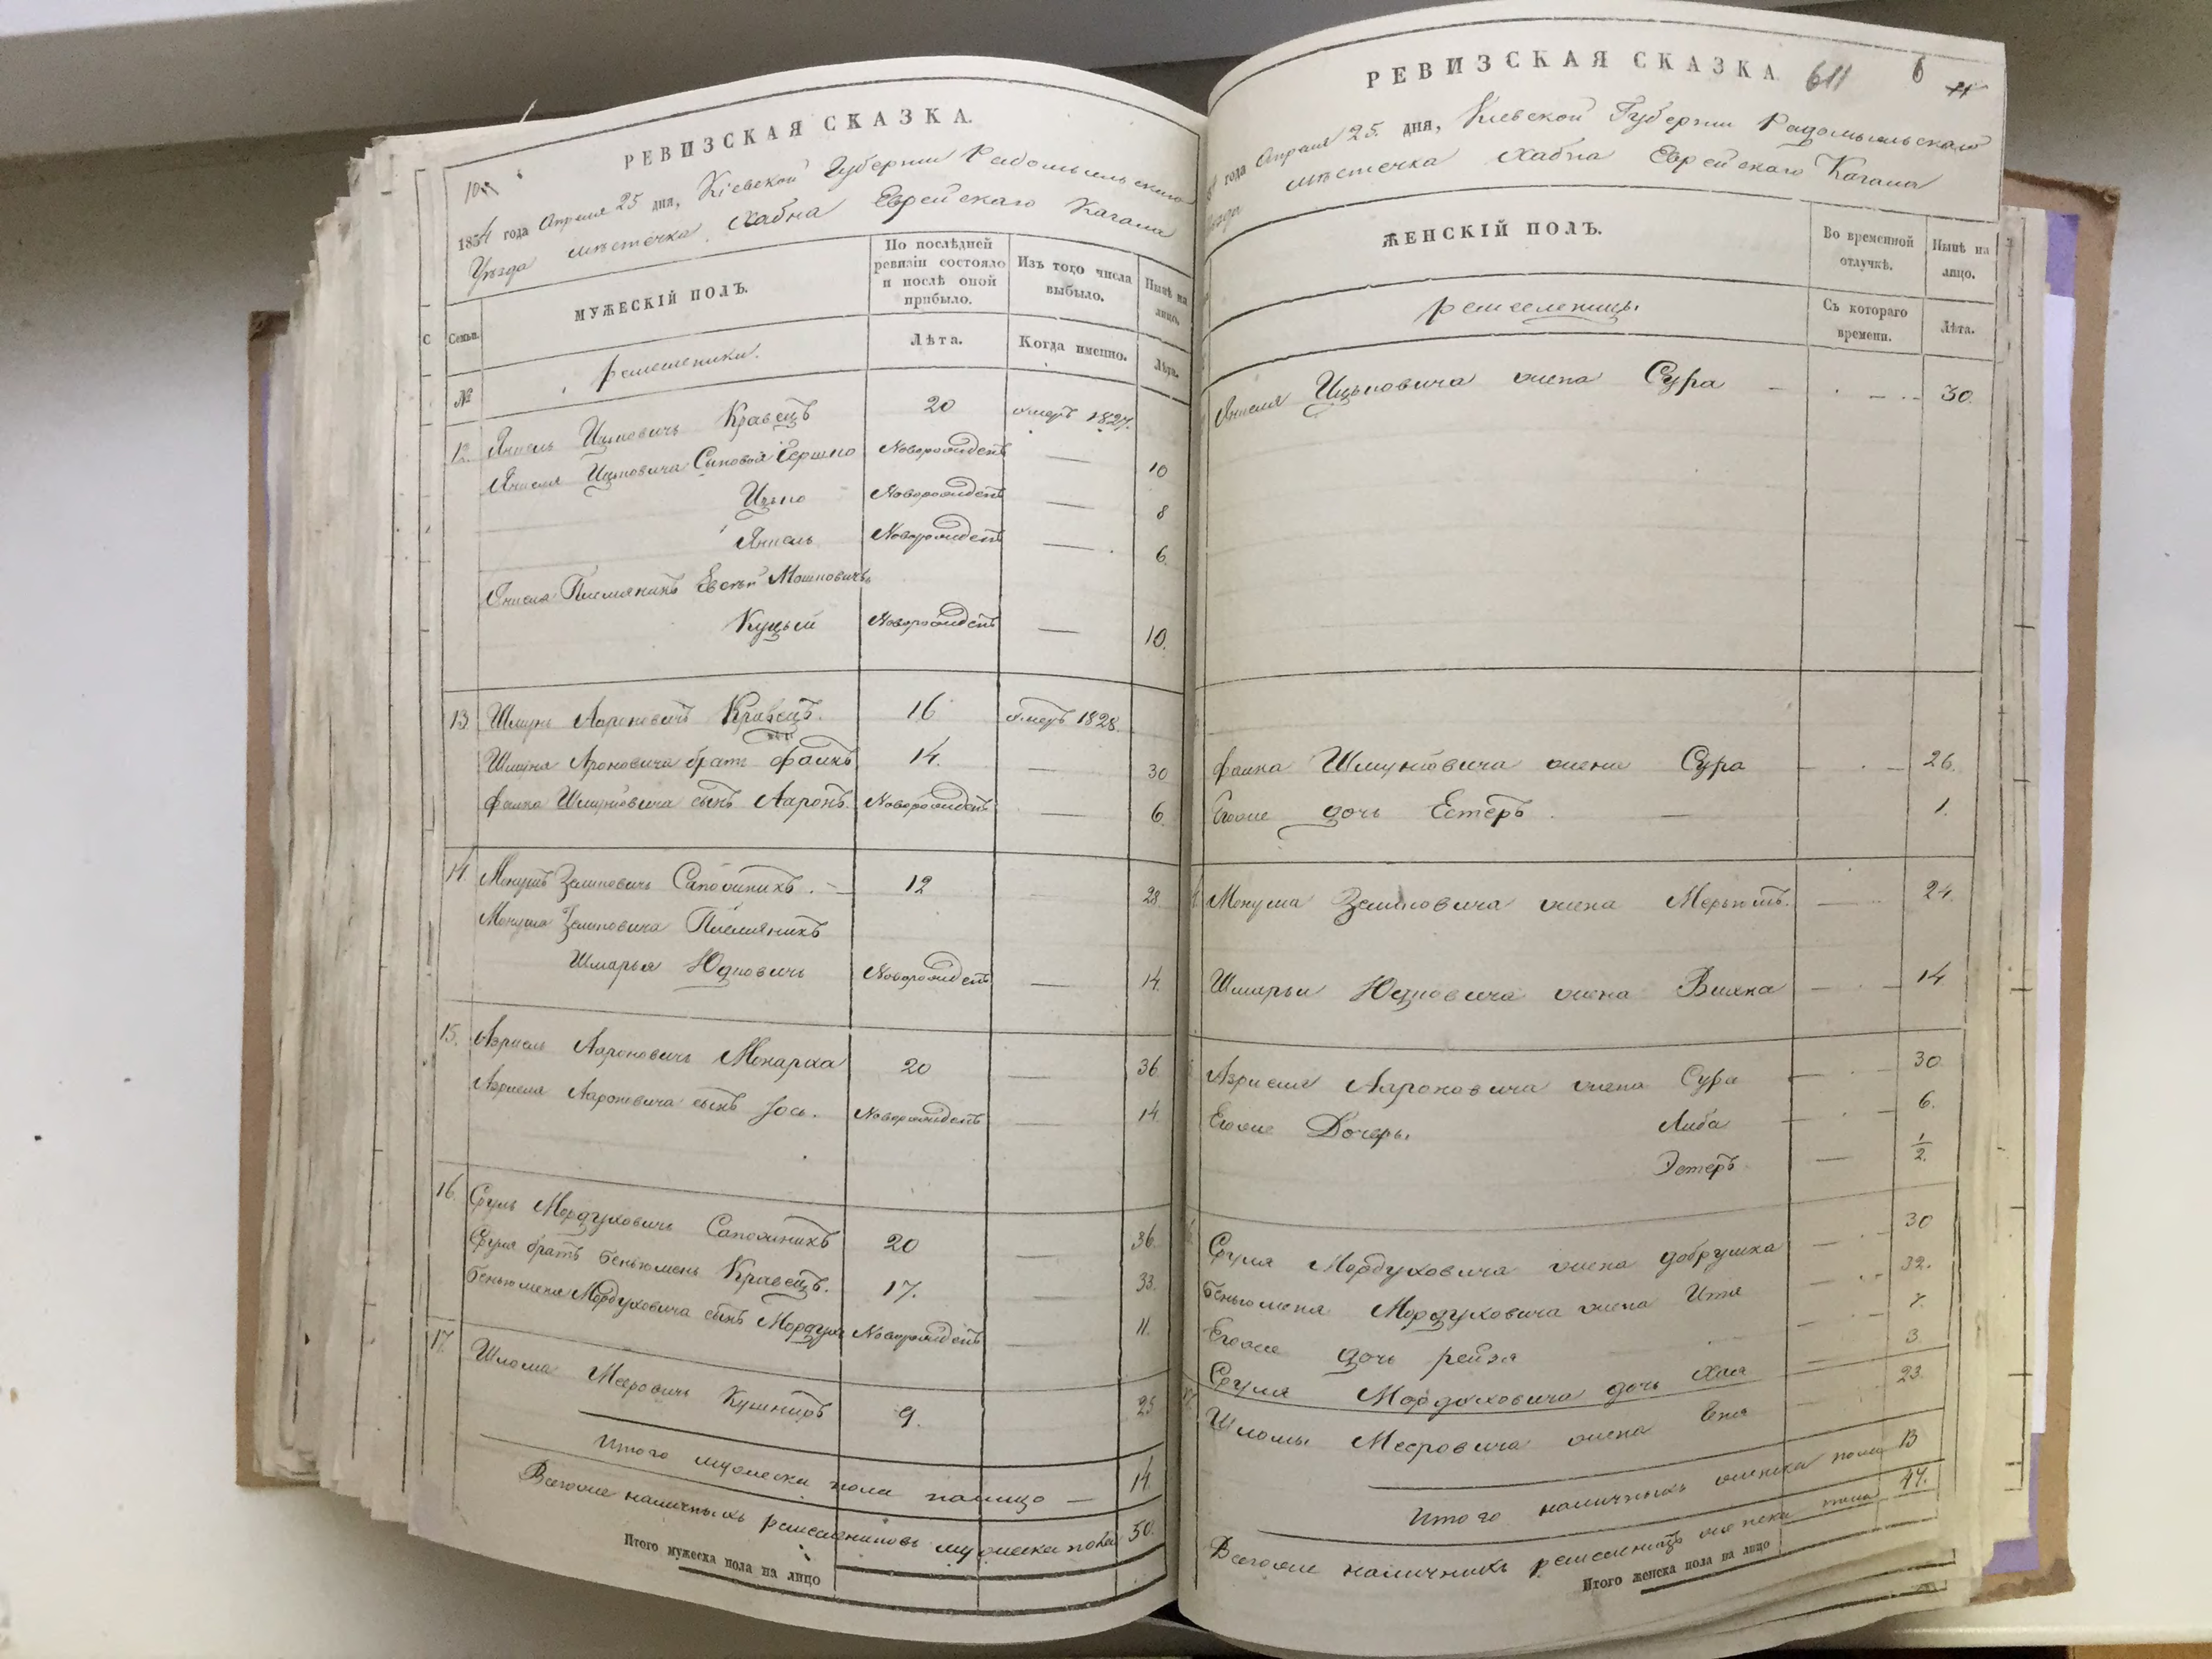 РЕВИЗСКАЯ СКАЗКА.
1834 года Апреля 25 дня, Кіевской Губерніи Радомысльскаго
Уѣзда мѣстечка Хабна Еврейскаго Кагала
Семьи.
МУЖЕСКІЙ ПОЛЪ.
По послѣдней ревизіи состояло и послѣ оной прибыло.
Изъ того числа выбыло.
Нынѣ на лицо.
№
Лѣта.
Когда именно.
Лѣта.
12. Янкель Ицковичъ Кравецъ 20 умеръ 1827.
Янкеля Ицковича Сыновья Гершко Новорожденъ — 10
Ицко Новорожденъ — 8
Янкель Новорожденъ — 6.
Янкеля Племяникъ Евсѣй Мошковичъ
Куцый Новорожденъ — 10.
13. Шмуль Аароновичъ Кравецъ. 16 умеръ 1828.
братъ Фаикъ 14. — 30
сынъ Ааронъ. Новорожденъ — 6
14. Сапожникъ. 12 — 28
Племяникъ
Шмарья Юдковичъ Новорожденъ — 14.
15. Азриель Аароновичъ Монарха 20 — 36
Азриеля Аароновича сынъ Іось. Новорожденъ — 14
16. Сруль Мордуховичъ Сапожникъ 20 — 36
Сруля братъ Беньюмень Кравецъ. 17. — 33.
Беньюменя Мордуховича сынъ Мордухъ Новорожденъ — 11.
17. Шлома Мееровичъ Кушниръ 9. 25
Итого мужеска пола налицо — 14.
Всего же наличныхъ ремеслениковъ мужеска пола 50.
Итого мужеска пола на лицо
РЕВИЗСКАЯ СКАЗКА 611 6
года Апреля 25. дня, Кіевской Губерніи Радомысльскаго
мѣстечка Хабна Еврейскаго Кагала
ЖЕНСКІЙ ПОЛЪ.
Во временной отлучкѣ.
Нынѣ на лицо.
Съ котораго времени.
Лѣта.
Янкеля Ицковича жена Сура — 30.
жена Сура — 26.
Егоже дочь Естеръ — 1.
жена — 24
Шмарьи Юдковича жена — 14
Азриеля Аароновича жена Сура — 30
Егоже Дочери Либа — 6.
Эстеръ — 1/2.
Сруля Мордуховича жена Добрушка — 30
Беньюменя Мордуховича жена Ита — 32.
Егоже дочь Рейза 7.
Сруля Мордуховича дочь Хая — 3
Шломы Мееровича жена 23.
Итого наличныхъ женска пола 13
Всего же наличныхъ женска пола 47.
Итого женска пола на лицо